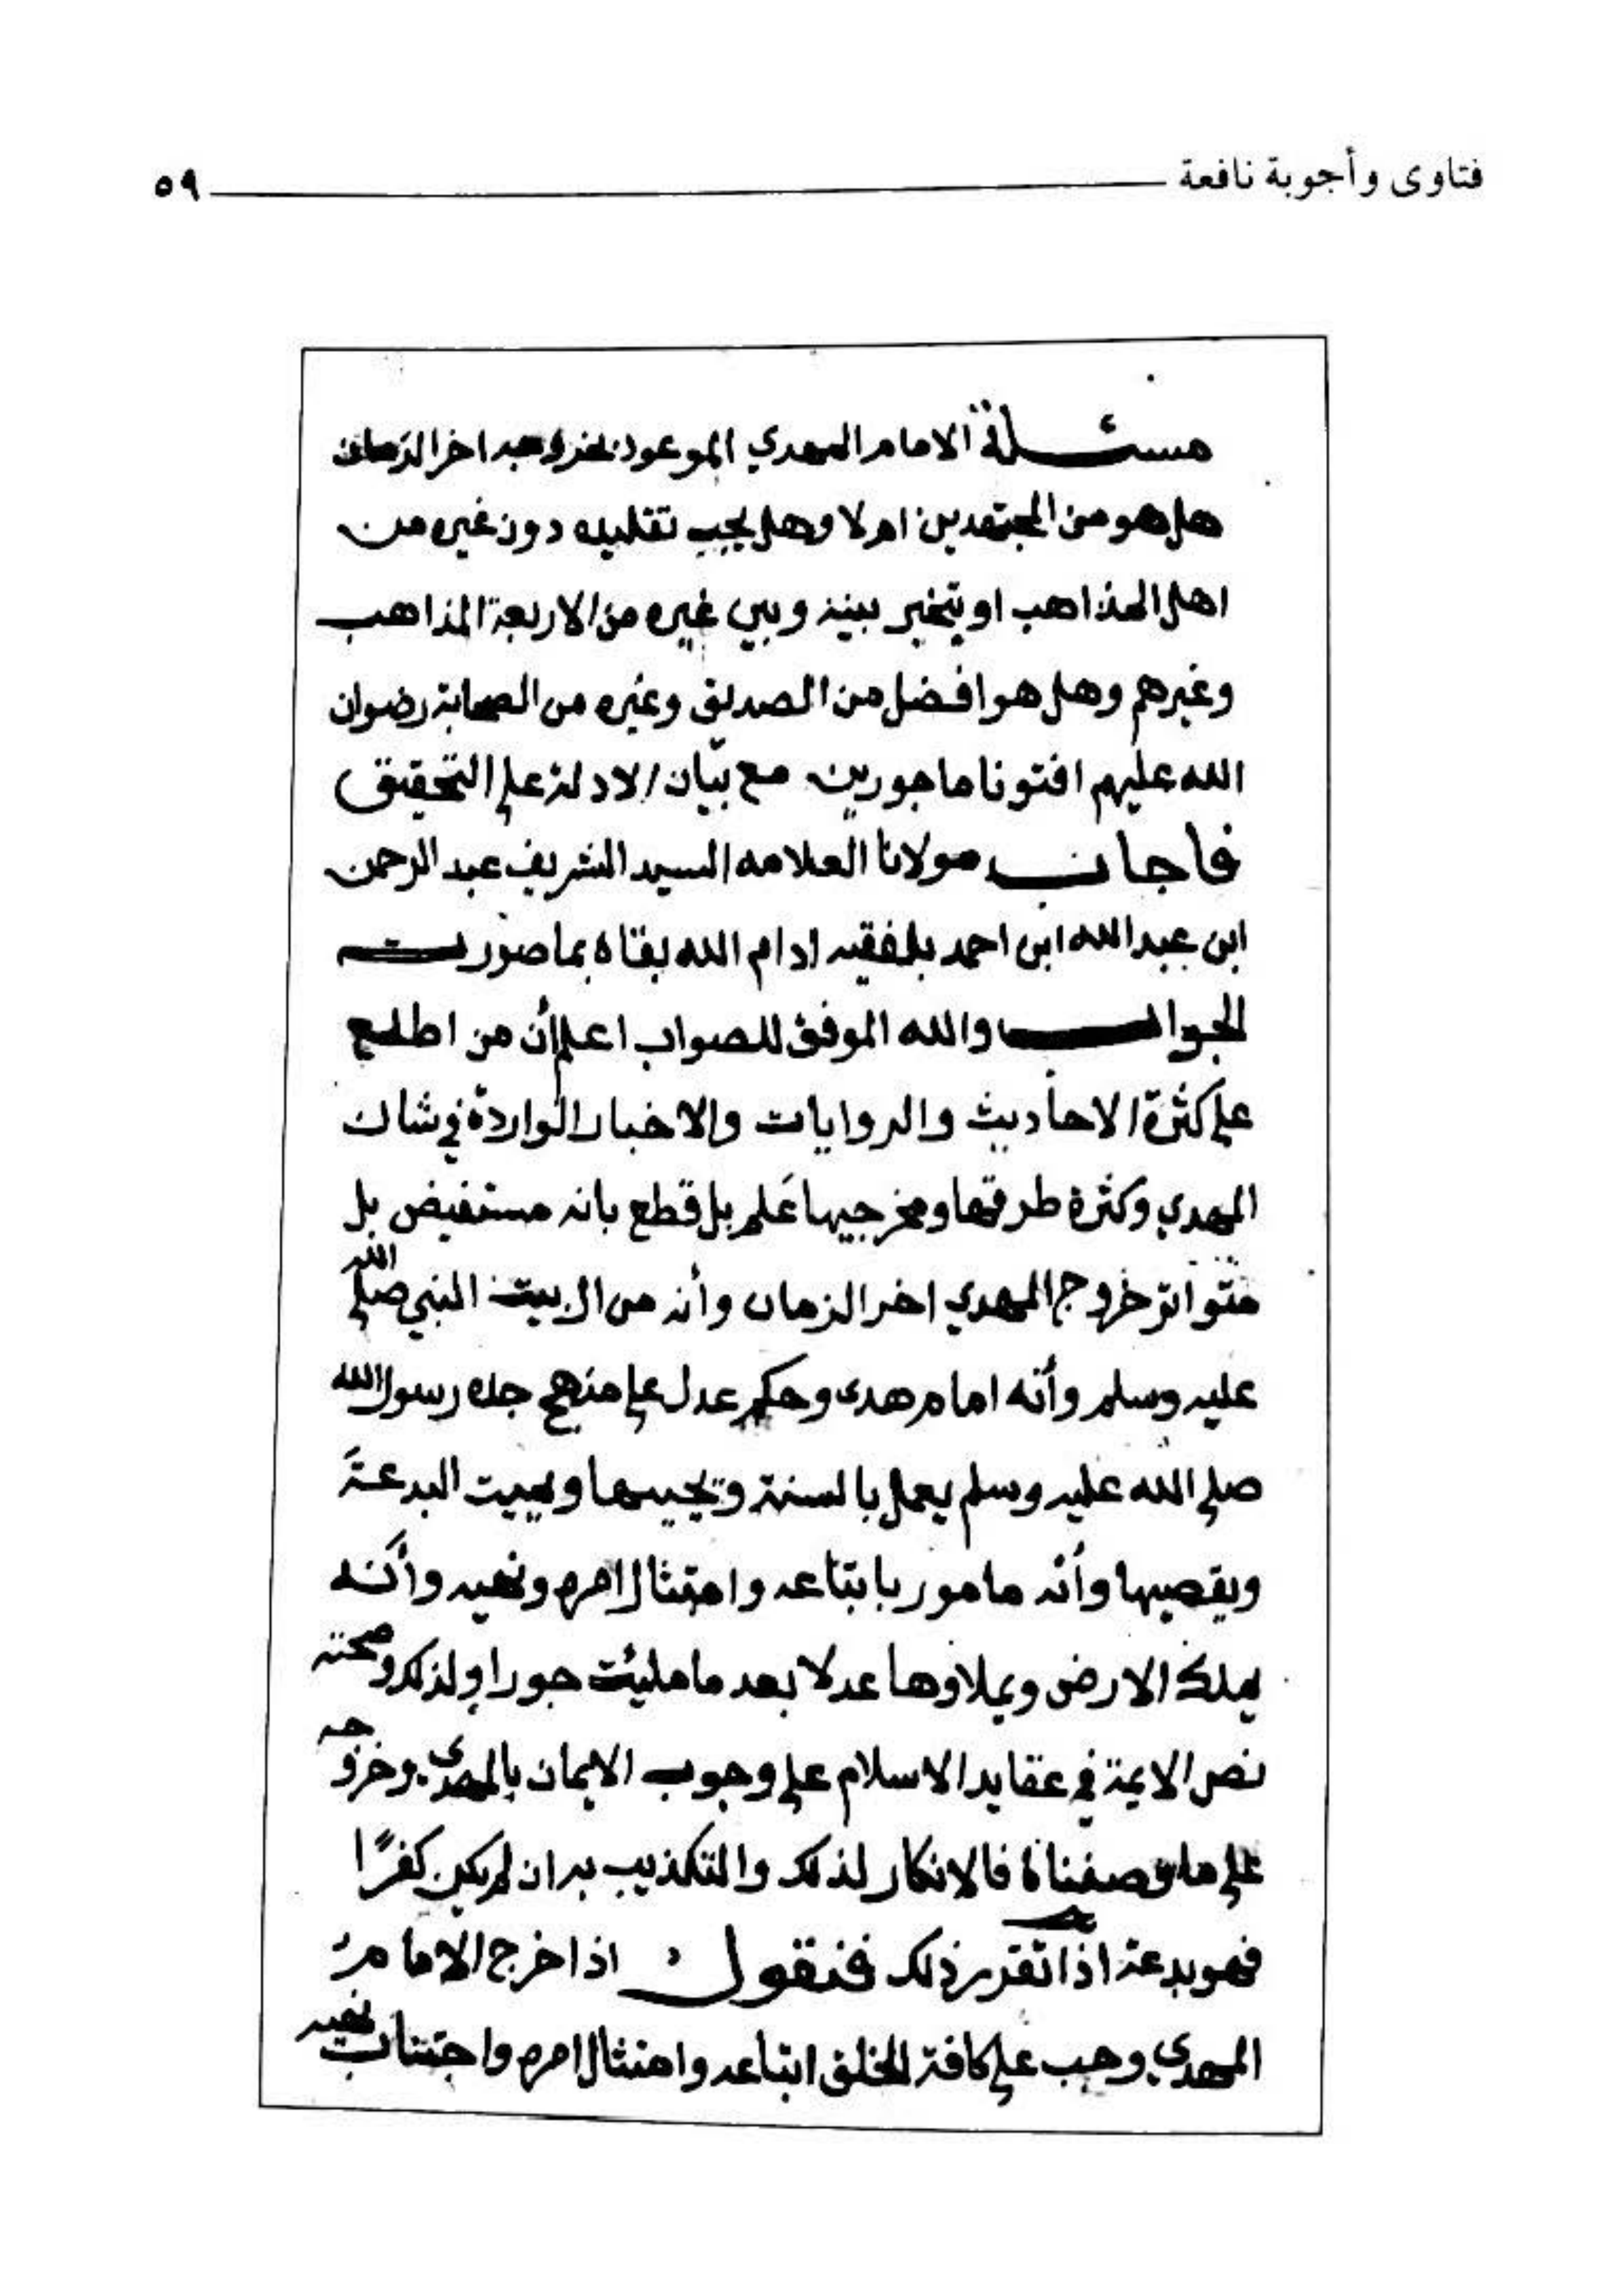 فتاوى وأجوبة نافعة ٥٩
مسئلة الامام المهدي الموعود بخروجه اخر الزمان
هل هو من المجتهدين ام لا وهل يجب تقليده دون غيره من
اهل المذاهب او يتخير بينه وبين غيره من الاربعة المذاهب
وغيرهم وهل هو افضل من الصديق وغيره من الصحابة رضوان
الله عليهم افتونا ماجورين مع بيان الادلة على التحقيق
فاجاب مولانا العلامه السيد الشريف عبد الرحمن
ابن عبد الله ابن احمد بلفقيه ادام الله بقاه بما صورته
الجواب والله الموفق للصواب اعلم أن من اطلع
على كثرة الاحاديث والروايات والاخبار الواردة في شان
المهدي وكثرة طرقها ومخرجيها عَلم بل قطع بانه مستفيض بل
متواتر خروج المهدي اخر الزمان وأنه من ال بيت النبي صلى الله
عليه وسلم وأنه امام هدى وحكم عدل على منهج جده رسول الله
صلى الله عليه وسلم يعمل بالسنة ويحييها ويميت البدعة
ويقصيها وأنه مامور باتباعه وامتثال امره ونهيه وأنه
يملك الارض ويملاوها عدلا بعد ما مليئت جورا ولذلك وصحته
نص الايمة في عقايد الاسلام على وجوب الايمان بالمهدي وخروجه
على ما وصفناه فالانكار لذلك والتكذيب به ان لم يكن كفرًا
فهو بدعة اذا تقرر ذلك فنقول اذا خرج الامام
المهدي وجب على كافة الخلق اتباعه وامتثال امره واجتناب نهيه